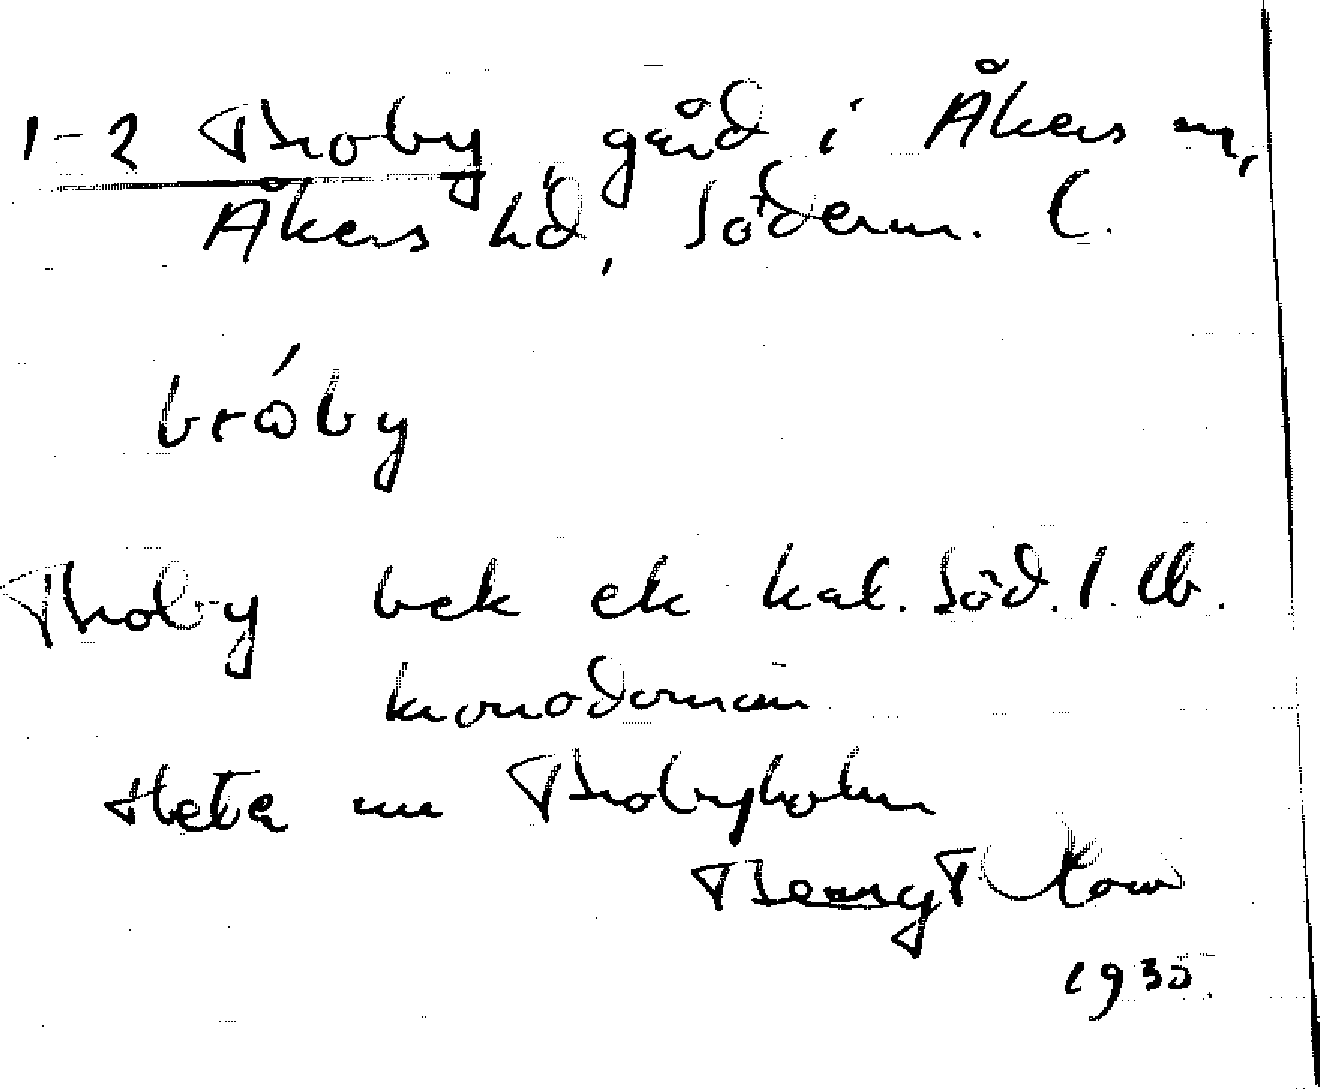 1-2 Broby, gård i Åkers sn,
Åkers hd, Söderm. l.
bróby
Broby bek ek kal. Söd. l. lb.
kronodomän
Heta nu Brobyholm
Bengt
1930.